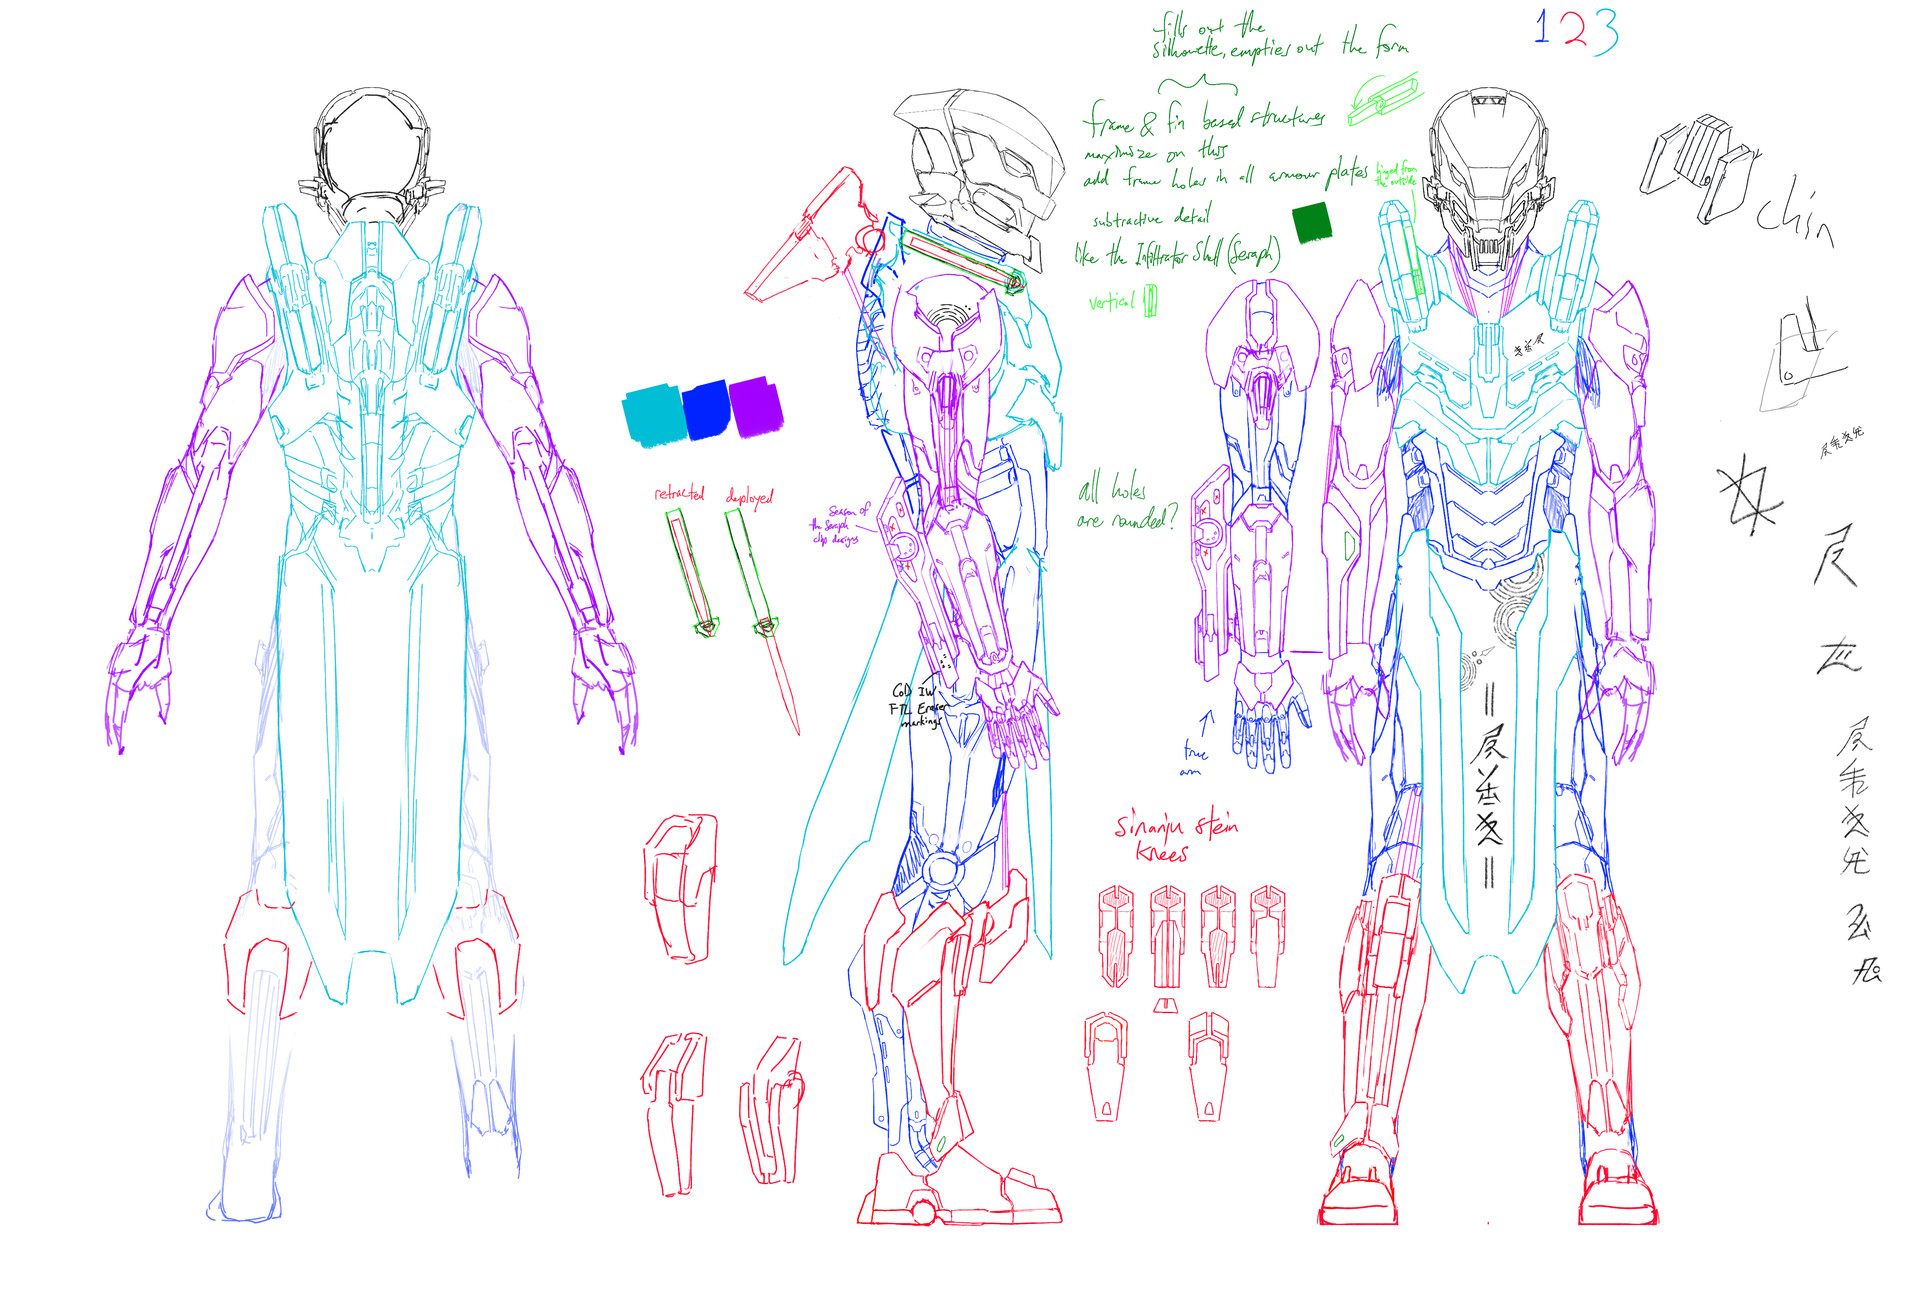 fills out the
silhouette, empties out the form
1 2 3
frame & fin based structures
maximize on this
add frame holes in all armour plates
hinged from
the outside
subtractive detail
like the Infiltrator Shell (Seraph)
vertical
chin
retracted deployed
all holes
are rounded?
Season of
the Seraph
clip designs
CoD IW
FTL Eraser
markings
true
arm
sinanju stein
knees